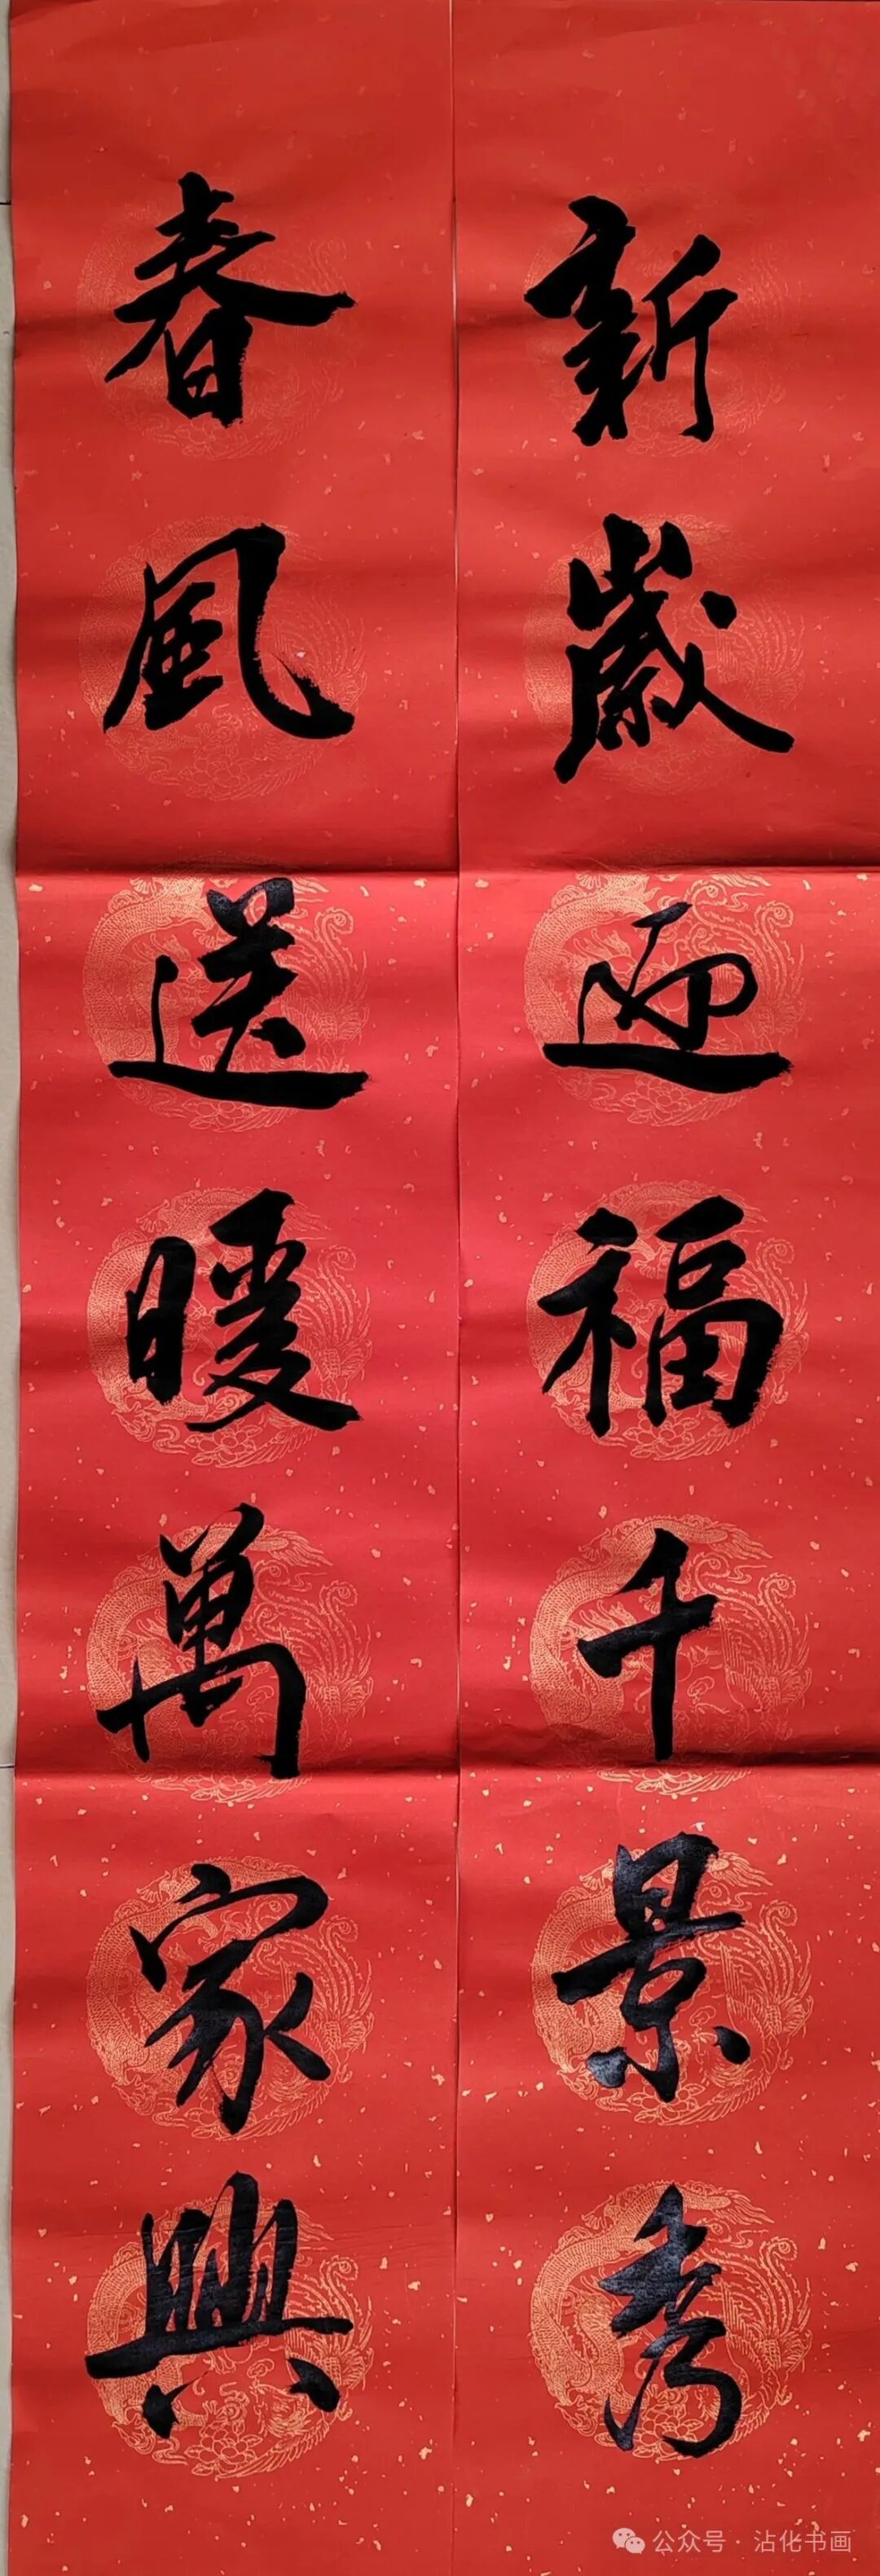 新歲迎福千景秀
春風送暖萬家興
公众号·沾化书画